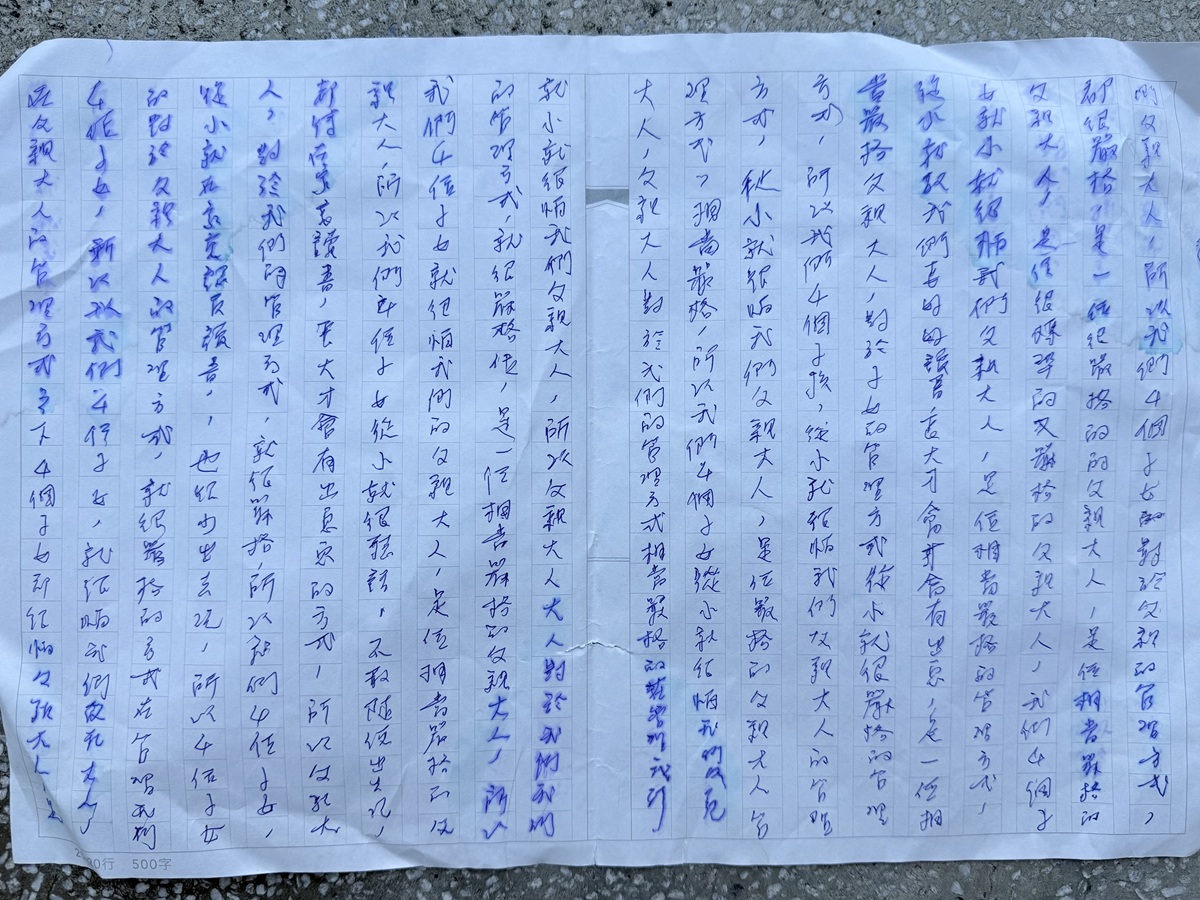 們父親大人，所以我們4個子女的對於父親的管理方式，
都很嚴格是一位很嚴格的的父親大人，是位相當嚴格的
父親大人，是位很的又嚴格的父親大人，我們4個子
女就小就很怕我們父親大人，是位相當嚴格的管理方式，
從小就教我們要好好讀書，長大才會才會有出息，是一位相
當嚴格父親大人，對於子女的管理方式從小就很嚴格的管理
方式，所以我們4個子孩，從小就很怕我們父親大人的管理
方式，從小就很怕我們父親大人，是位嚴格的父親大人管
理方式，相當嚴格，所以我們4個子女從小就很怕我們父親
大人，父親大人對於我們的管理方式相當嚴格的管理
就小就很怕我們父親大人，所以父親大人大人對於我們我們
的管理方式，就很嚴格位，是一位相當嚴格的父親大人，所以
我們4位子女就很怕我們的父親大人，是位相當嚴格的父
親大人，所以我們4位子女從小就很聽話，不敢隨便出去玩，
都待在家讀書，長大才會有出息的方式，所以父親大
人，對於我們的管理方式，就很嚴格，所以我們4位子女，
從小就在家讀書，，也很少出去玩，所以4位子女
的對於父親大人的管理方式，就很嚴格的方式在管理我們
4位子女，所以我們4位子女，就很怕我們父親大人，
在父親大人的管理方式之下4個子女都很怕父親大人，是
500字